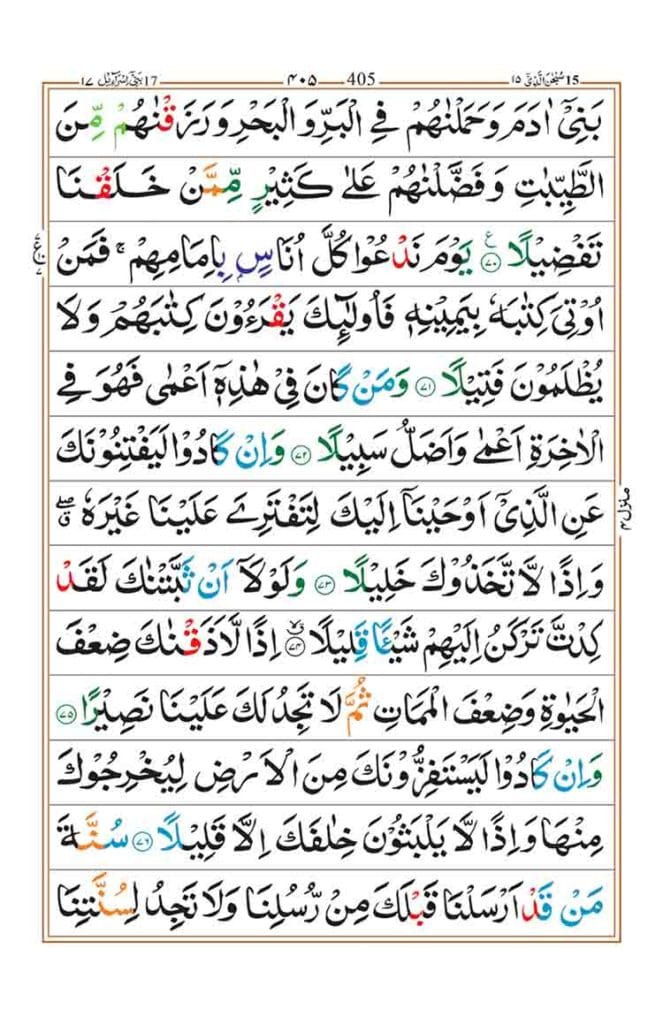 سُبْحٰنَ الَّذِیْٓ ۱۵ 15 ۴۰۵ 405 بَنِیْٓ اِسْرَآءِیْل ۱۷ 17
بَنِیْۤ اٰدَمَ وَحَمَلْنٰهُمْ فِی الْبَرِّ وَالْبَحْرِ وَرَزَقْنٰهُمْ مِّنَ
الطَّیِّبٰتِ وَفَضَّلْنٰهُمْ عَلٰی كَثِیْرٍ مِّمَّنْ خَلَقْنَا
تَفْضِیْلًا ۧ﴿۷۰﴾ یَوْمَ نَدْعُوْا كُلَّ اُنَاسٍۭ بِاِمَامِهِمْ ۚ فَمَنْ
اُوْتِیَ كِتٰبَهٗ بِیَمِیْنِهٖ فَاُولٰٓئِكَ یَقْرَءُوْنَ كِتٰبَهُمْ وَلَا
یُظْلَمُوْنَ فَتِیْلًا ﴿۷۱﴾ وَمَنْ كَانَ فِیْ هٰذِهٖۤ اَعْمٰی فَهُوَ فِی
الْاٰخِرَةِ اَعْمٰی وَاَضَلُّ سَبِیْلًا ﴿۷۲﴾ وَاِنْ كَادُوْا لَیَفْتِنُوْنَكَ
عَنِ الَّذِیْۤ اَوْحَیْنَاۤ اِلَیْكَ لِتَفْتَرِیَ عَلَیْنَا غَیْرَهٗ ۖۗ
وَاِذًا لَّاتَّخَذُوْكَ خَلِیْلًا ﴿۷۳﴾ وَلَوْلَاۤ اَنْ ثَبَّتْنٰكَ لَقَدْ
كِدْتَّ تَرْكَنُ اِلَیْهِمْ شَیْـًٔا قَلِیْلًا ﴿۷۴﴾ اِذًا لَّاَذَقْنٰكَ ضِعْفَ
الْحَیٰوةِ وَضِعْفَ الْمَمَاتِ ثُمَّ لَا تَجِدُ لَكَ عَلَیْنَا نَصِیْرًا ﴿۷۵﴾
وَاِنْ كَادُوْا لَیَسْتَفِزُّوْنَكَ مِنَ الْاَرْضِ لِیُخْرِجُوْكَ
مِنْهَا وَاِذًا لَّا یَلْبَثُوْنَ خِلٰفَكَ اِلَّا قَلِیْلًا ﴿۷۶﴾ سُنَّةَ
مَنْ قَدْ اَرْسَلْنَا قَبْلَكَ مِنْ رُّسُلِنَا وَلَا تَجِدُ لِسُنَّتِنَا
منزل ۴